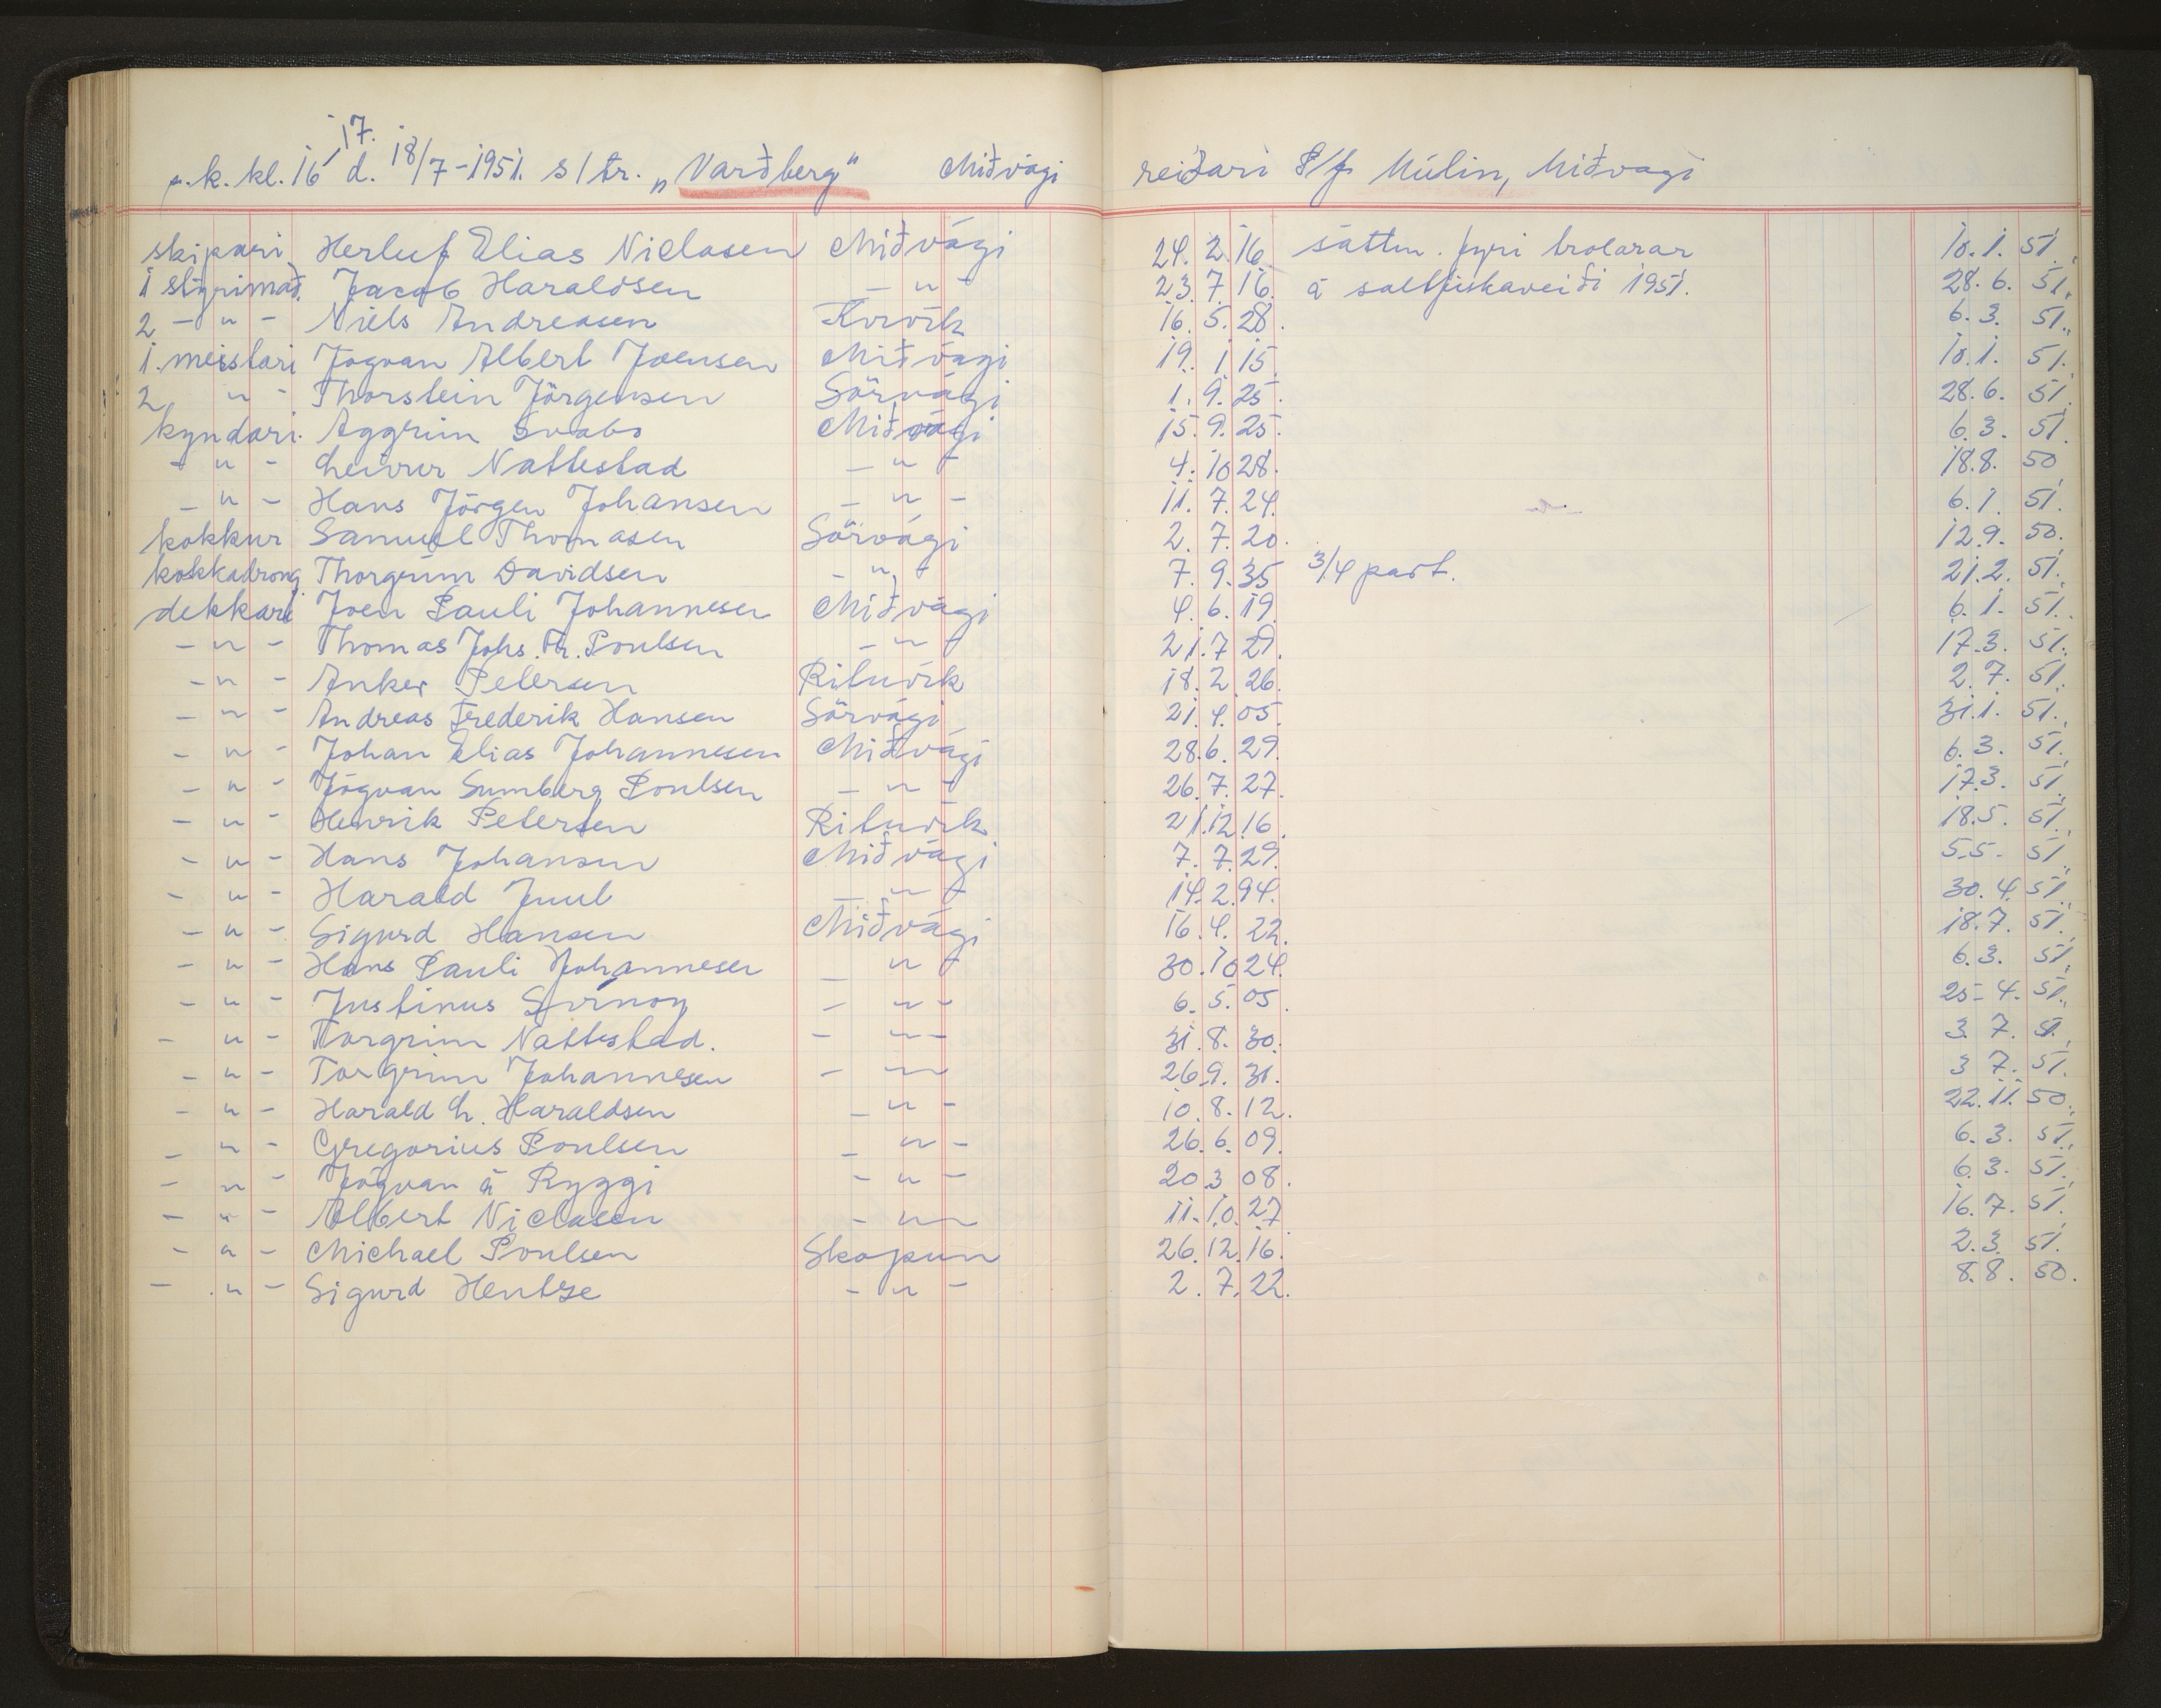 17.
m.k. kl. 16 d. 18/7-1951. s/tr. „Varðberg“ Miðvági reiðari P/f Múlin, Miðvági
skipari Herluf Elias Niclasen Miðvági 24. 2. 16. sáttm. fyri trolarar 10. 1. 51.
1 stýrimað. Jacob Haraldsen - " - 23. 7. 16. á saltfiskaveiði 1951. 28. 6. 51.
2 - " - Niels Andreasen 16. 5. 28. 6. 3. 51.
1. meistari Jógvan Albert Joensen Miðvági 19. 1. 15. 10. 1. 51.
2 " - Thorstein Jörgensen Sörvági 1. 9. 25. 28. 6. 51.
kyndari. Aggrim Svabo Miðvági 15. 9. 25. 6. 3. 51.
- " - Leivur Nattestad - " - 4. 10 28. 18. 8. 50
- " - Hans Jörgen Johansen - " - 11. 7. 24. 6. 1. 51.
kokkur Samuel Thomasen Sörvági 2. 7. 20. 12. 9. 50.
kokkadrong Thorgrím Davidsen - " - 7. 9. 35 3/4 part. 21. 2. 51.
dekkari Joen Pauli Johannesen Miðvági 4. 6. 19. 6. 1. 51.
- " - Thomas Johs. Fr. Poulsen - " - 21. 7 29. 17. 3. 51.
- " - Anker Petersen Rituvík 18. 2. 26. 2. 7. 51.
- " - Andreas Frederik Hansen Sörvági 21. 4. 05. 31. 1. 51.
- " - Johan Elias Johannesen Miðvági 28. 6. 29. 6. 3. 51.
- " - Jógvan Sumberg Poulsen - " - 26. 7. 27. 17. 3. 51.
- " - Henrik Petersen Rituvík 21. 12 16. 18. 5. 51.
- " - Hans Johansen Miðvági 7. 7. 29. 5. 5. 51.
- " - Harald Juul - " - 14. 2. 94. 30. 4. 51.
- " - Sigurd Hansen Miðvági 16. 4. 22. 18. 7. 51.
- " - Hans Pauli Johannesen - " - 30. 10 24. 6. 3. 51.
- " - Justinus - " - 6. 5. 05. 25. 4. 51.
- " - Torgrim Nattestad. - " - 31. 8. 30. 3. 7. 51.
- " - Torgrim Johannesen - " - 26. 9. 31. 3 7. 51.
- " - Harald L. Haraldsen - " - 10. 8. 12. 22. 11. 50.
- " - Gregorius Poulsen - " - 26. 6. 09. 6. 3. 51.
- " - Jógvan á Ryggi - " - 20 3 08. 6. 3. 51.
- " - Albert Niclasen - " - 11. 10. 27 16. 7. 51.
- " - Michael Poulsen Skopun 26. 12. 16. 2. 3. 51.
- " - Sigurd Hentze - " - 2. 7. 22. 8. 8. 50.